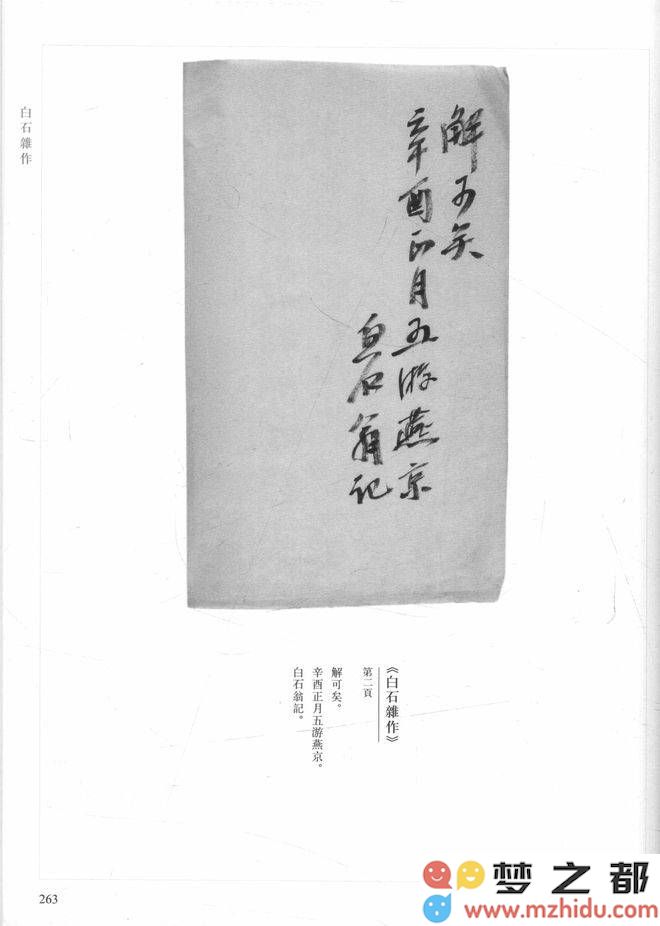 白石雜作
解可矣
辛酉正月五游燕京
白石翁記
《白石雜作》
第二頁
解可矣。
辛酉正月五游燕京。
白石翁記。
263
梦之都
www.mzhidu.com